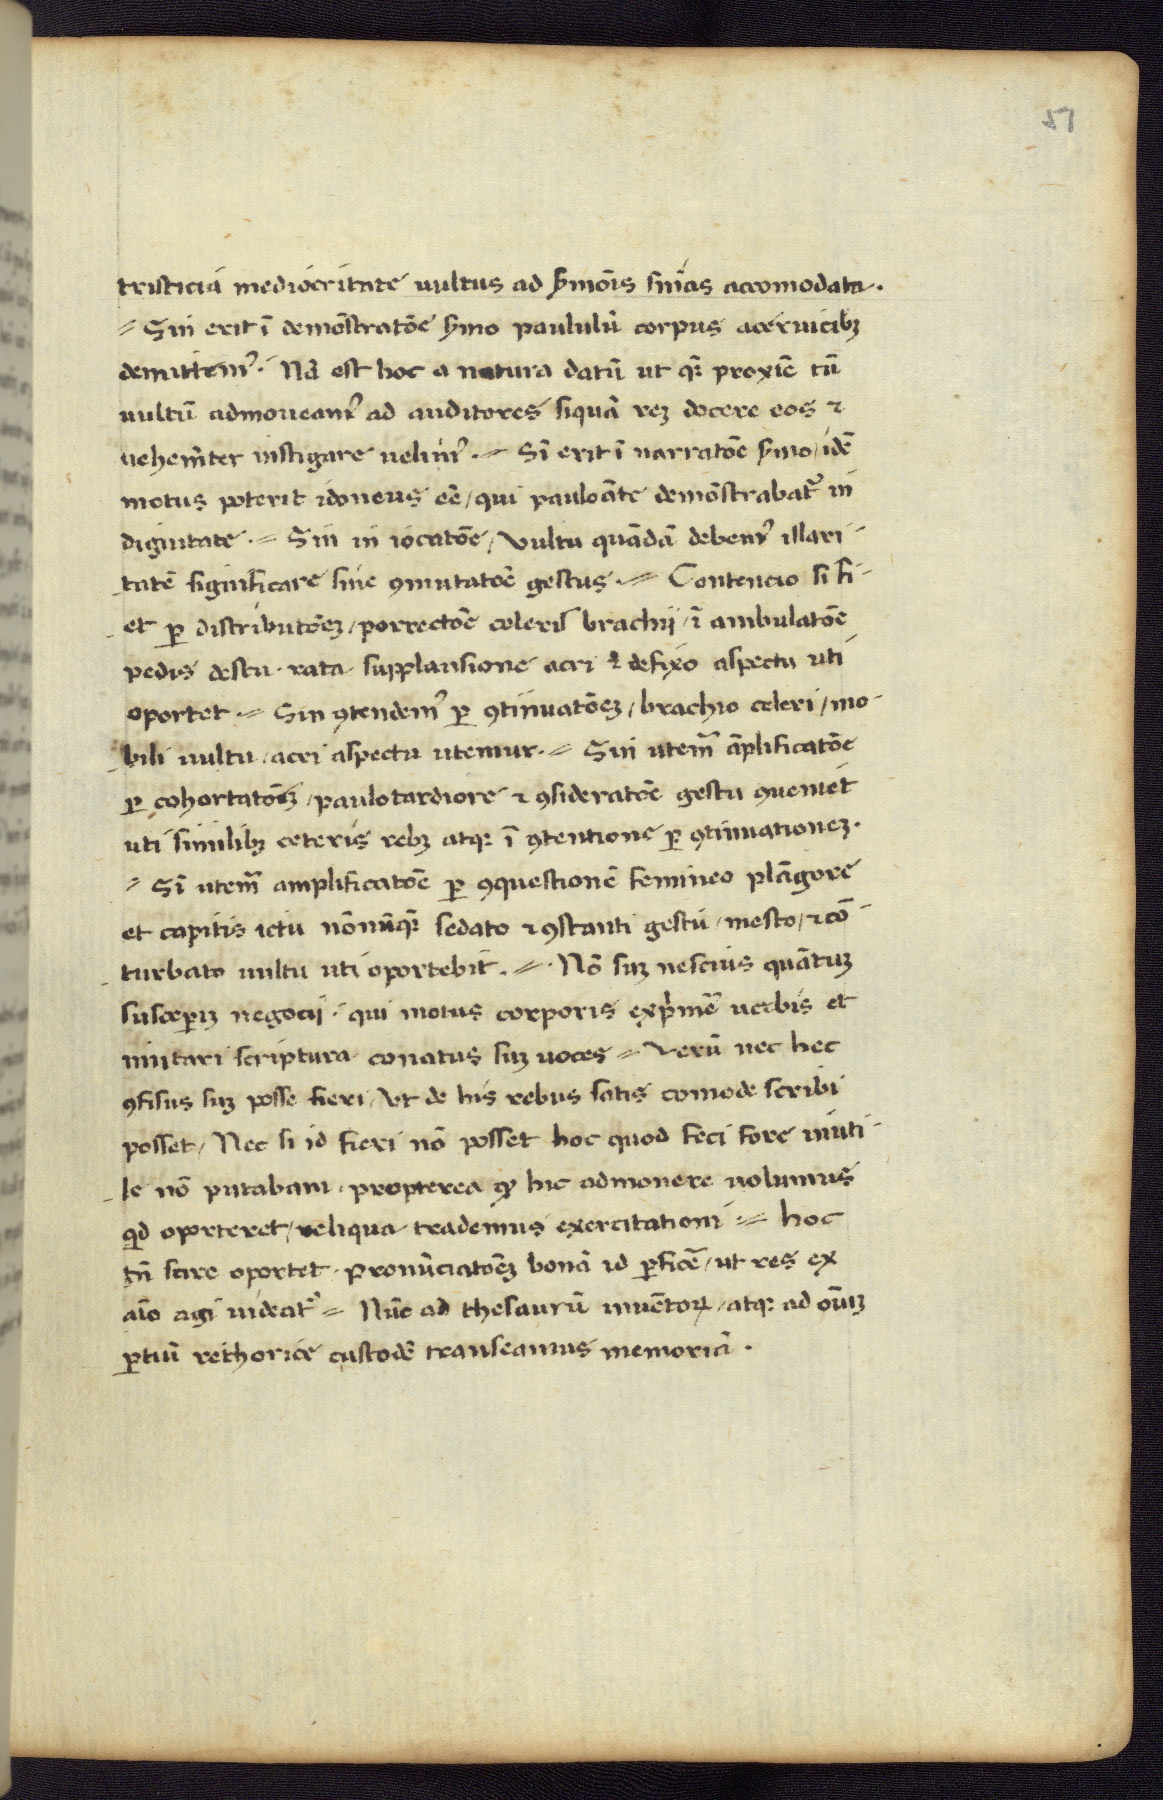 51
tristiciā mediocritate uultus ad ẜmōis sn̄ias accomodata.
Sin erit ī demōstratōe ẜmo paululū corpus acexuicibꝫ
demittemꝰ. Nā est hoc a natura datū ut qꝫ proxīe tū
uultū admoueamꝰ ad auditores siquā reꝫ docere eos ⁊
uehemēter instigare uelimꝰ. Sī erit ī narratōe ẜmo / idē
motus poterit idoneus eē / qui pauloāte demōstrabat᷑ in
dignitate. Sin in iocatōe / Vultu quādā debemꝰ illari-
tatē significare sine ꝯmutatōe gestus. Contencio si fi-
et ꝑ distributōeꝫ / porrectōe celeris brachij / ī ambulatōe
pedis destu. rata. supplausione acri ⁊ defixo aspectu uti
oportet. Sin ꝯtendemꝰ ꝑ ꝯtinuatōeꝫ / brachio celeri / mo-
bili uultu / acri aspectu utemur. Sin utem᷑ āplificatōe
ꝑ cohortatōeꝫ / paulotardiore ⁊ ꝯsideratōe gestu ꝯueniet
uti similibꝫ ceteris rebꝫ atqꝫ ī ꝯtentione ꝑ ꝯtinuationeꝫ.
Sī utem᷑ amplificatōe ꝑ ꝯquestionē femineo plāgore
et capitis ictu nōnūqꝫ sedato ⁊ ꝯstanti gestu / mesto / ⁊ cō-
turbato uultu uti oportebit. Nō suꝫ nescius quātuꝫ
susceꝑiꝫ negocij. qui motus corporis exp̄mē uerbis et
mutari scriptura conatus suꝫ uoces Verū nec hec
ꝯfisus suꝫ posse fieri / Vt de his rebus satis comode scribi
posset / Nec si id fieri nō posset hoc quod feci fore inuti-
le nō putabam. propterea qꝫ hic admonere uolumus
qd̄ oporteret / reliqua trademus exercitationi hoc
tn̄ scire oportet. Pronūciatōeꝫ bonā id ꝑficē / ut res ex
aīo agi uideat᷑ Nūc ad thesaurū inuētoꝝ / atqꝫ ad oīuꝫ
ꝑtiū rethorice custodē transeamus memoriā.